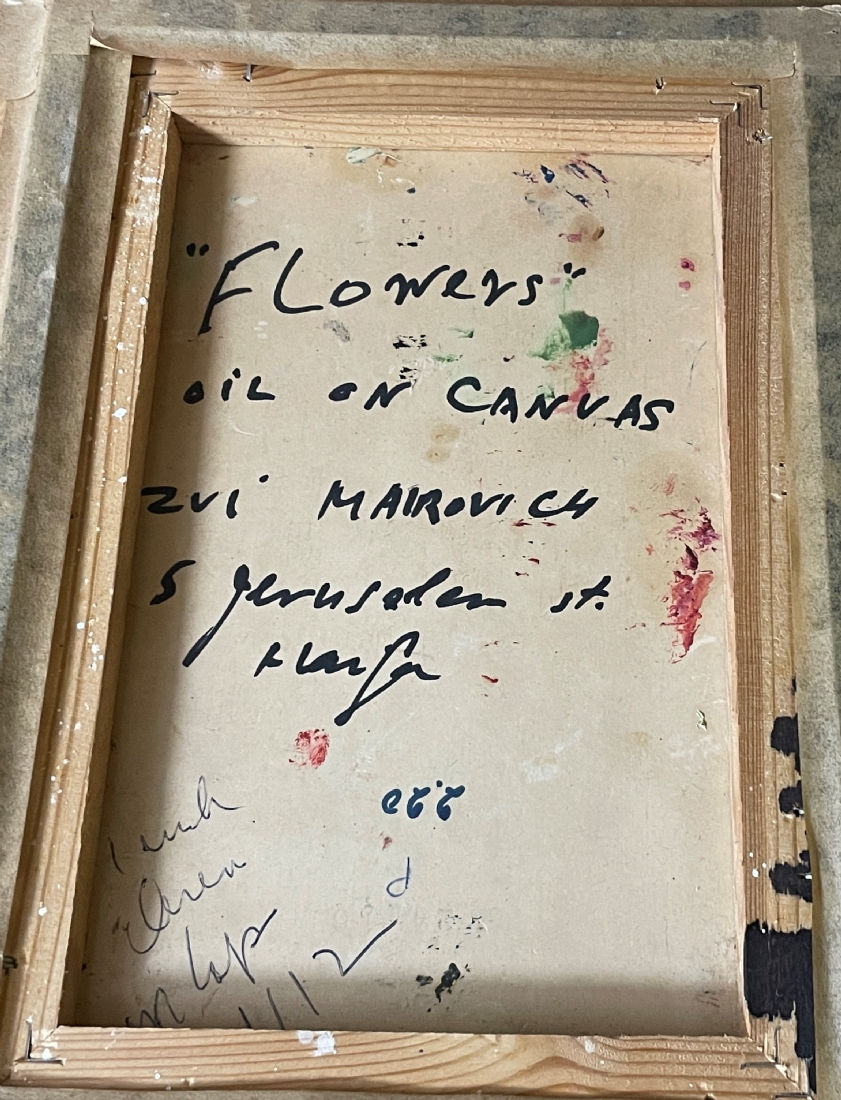 "Flowers"
OIL ON CANVAS
ZVI MAIROVICH
5 Jerusalem st.
Haifa
1 inch
on top